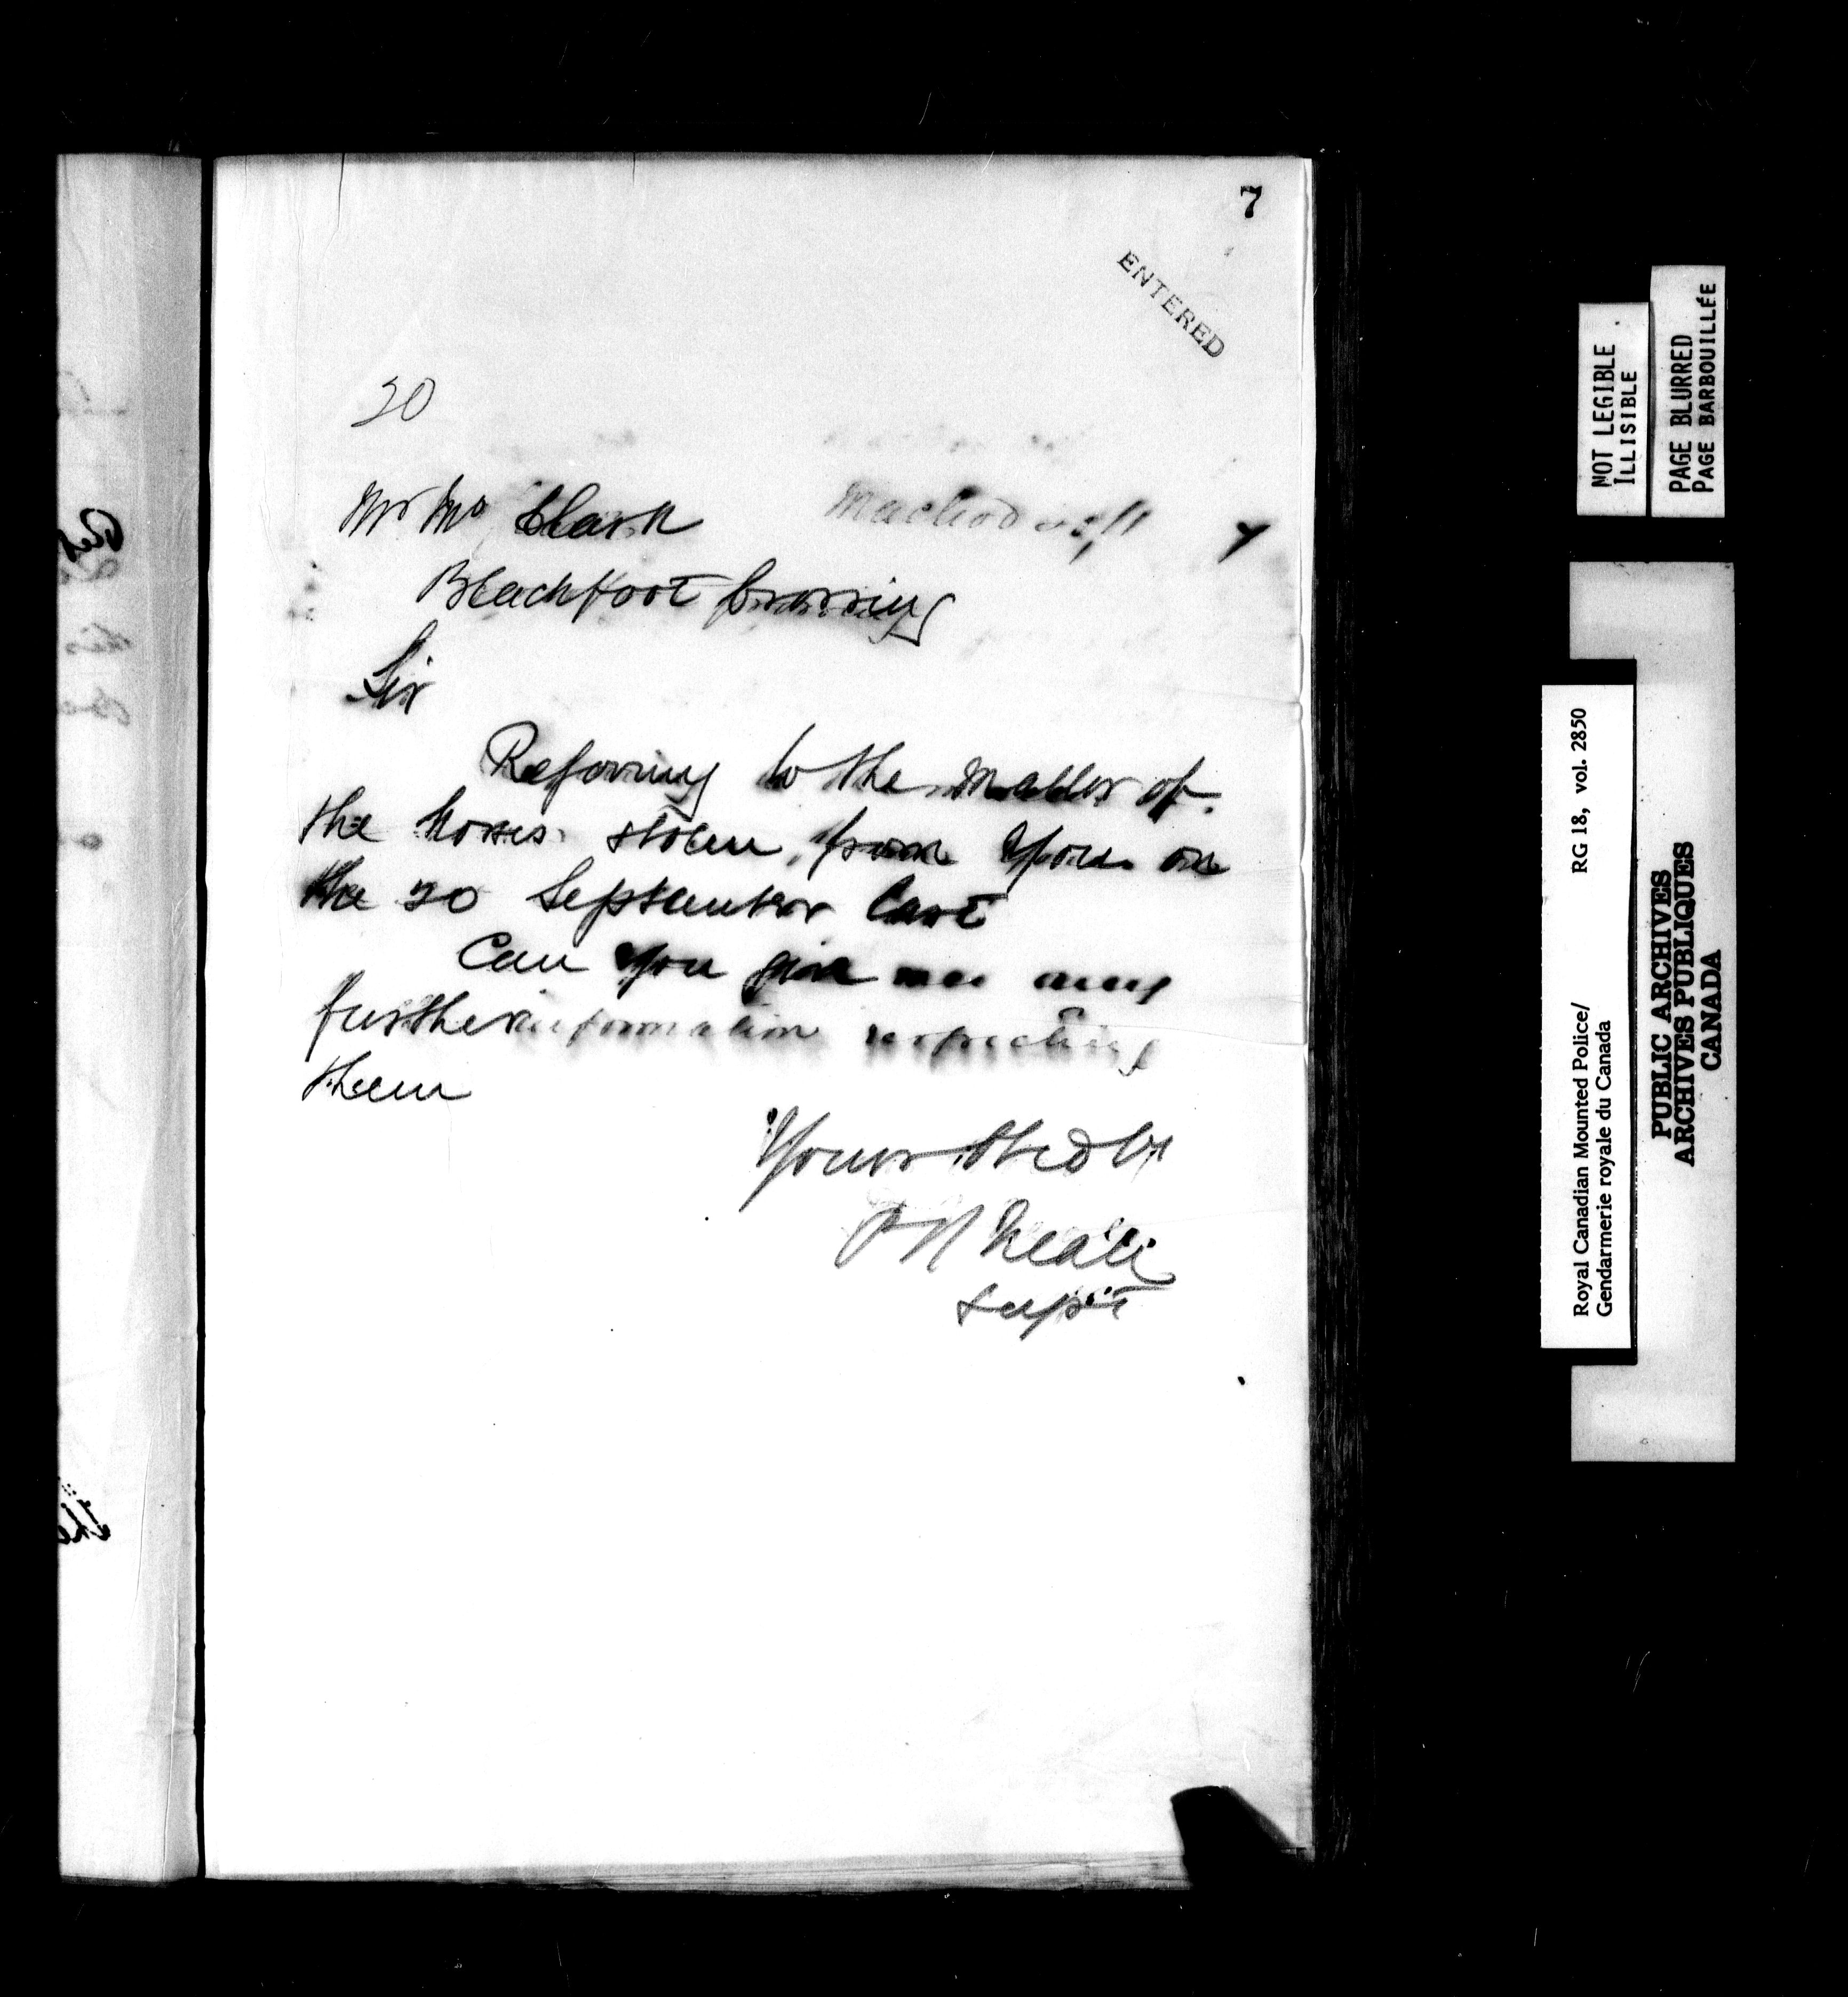 7
ENTERED
20
Mr Mc Clark
Macleod
7
Blackfoot Crossing
Sir
Referring to the matter of
the horses stolen from you on
the 20 September last
Can you give me any
further information respecting
them
Yours
P R Neale
Supt
NOT LEGIBLE
ILLISIBLE
PAGE BLURRED
PAGE BARBOUILLÉE
RG 18, vol. 2850
Royal Canadian Mounted Police/
Gendarmerie royale du Canada
PUBLIC ARCHIVES
ARCHIVES PUBLIQUES
CANADA